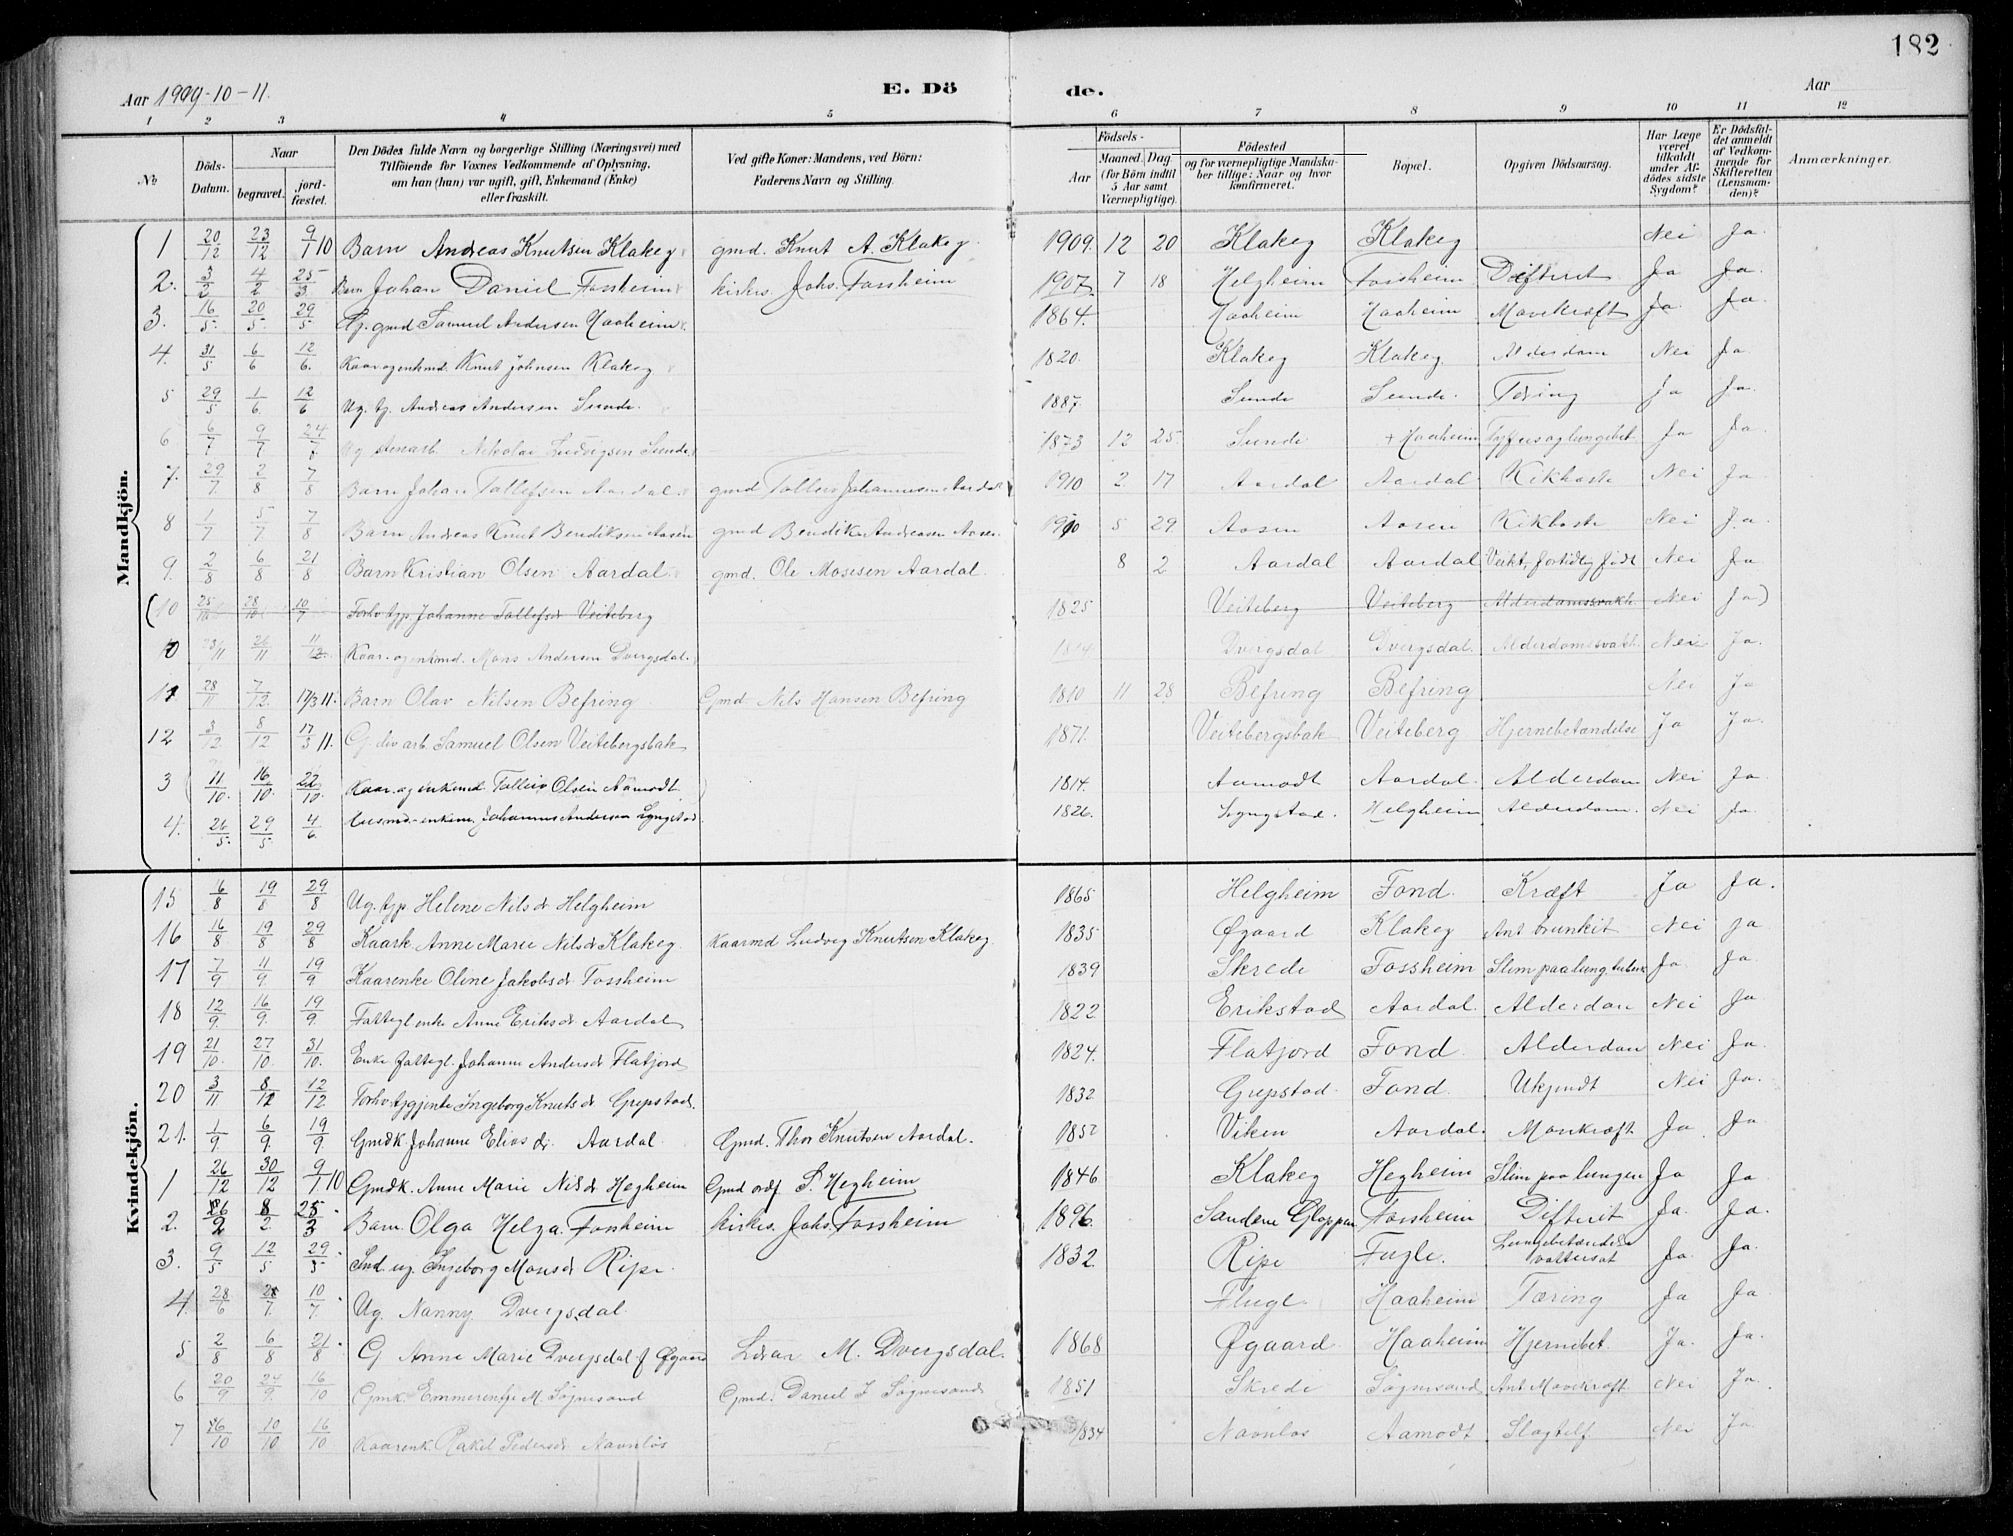 182
Aar 1909-10-11.
E. Dö de.
Aar
1 2 3 4 5 6 7 8 9 10 11 12
No
Döds-Datum.
Naar
begravet.
jord-fæstet.
Den Dödes fulde Navn og borgerlige Stilling (Næringsvei) med
Tilföiende for Voxnes Vedkommende af Oplysning,
om han (hun) var ugift, gift, Enkemand (Enke)
eller fraskilt.
Ved gifte Koner: Mandens, ved Börn:
Faderens Navn og Stilling.
Födsels-
Aar
Maaned. Dag.
(for Börn indtil
5 Aar samt
Værnepligtige).
Födested
og for værnepligtige Mandska-
ber tillige: Naar og hvor
konfirmeret.
Bopæl.
Opgiven Dödsaarsag.
Har Læge
været
tilkaldt
under Af-
dödes sidste
Sygdom?
Er Dödsfal-
det anmeldt
af Vedkom-
mende for
Skifteretten
(Lensman-
den)?
Anmærkninger.
Mandkjön.
1 20/12 23/12 9/1 10 Barn Andreas Knutsen Klakeg gmd. Knut A. Klakeg. 1909. 12 20 Klakeg Klakeg Nei Ja.
2. 3/2 4/2 25/3 Barn Johan Daniel Fossheim kirkes. Johs. Fossheim 1907. 7 18 Helgheim Fossheim Difterit Ja Ja.
3. 16/5. 20/5. 29/5 G. gmd Samuel Andersen Haaheim. 1864. Haaheim Haaheim Mavekræft Ja. Ja.
4. 31/5 6/6 12/6. Kaar og enkmd. Knut Johnsen Klakeg 1820. Klakeg Klakeg Alderdom Nei Ja.
5 29/5 1/6. 12/6 Ug. tj. Andreas Andersen Sunde. 1887. Sunde Sunde. Tæring Ja Ja.
6 6/7 9/7 24/7 Ug stenarb. Nikolai Ludvigsen Sunde 1873 12 25. Sunde + Haaheim Tyfus og lungebet. Ja Ja.
7. 29/7. 2/8 7/8 Barn Johan Tollefsen Aardal gmd Tolleiv Johannesen Aardal 1910 2. 17 Aardal Aardal Kikhoste Nei Ja.
8 1/7 5/7 7/8 Barn Andreas Knut Bendiksen Aasen gmd Bendik Andreasen Aasen. 1910 5 29 Aasen Aasen Kikhoste Nei Ja.
9. 2/8 6/8 21/8 Barn Kristian Olsen Aardal. gmd. Ole Mosesen Aardal. 8 2 Aardal Aardal Veikt, fortidlig född Nei Ja
(10 25/10 28/10 10/7 Forhv. tjp. Johanne Tollefsdr Veiteberg 1825 Veiteberg Veiteberg Alderdomssvakh. Nei Ja)
10 23/11 26/11 11/12. Kaar- og enkmd. Mons Andersen Dvergsdal. 1814 Dvergsdal Dvergsdal. Alderdomssvakh. Nei Ja.
11 28/11 7/12. 17/3 11. Barn Olav Nilsen Befring Gmd Nils Hansen Befring 1810 11 28 Befring Befring Nei Ja
12 3/12 8/12 17/3 11. G. div arb. Samuel Olsen Veitebergsbak 1871. Veitebergsbak Veiteberg Hjernebetændelse Ja Ja.
3 11/10. 16/10. 22/10. Kaar- og enkemd Tolleiv Olsen Aamodt 1814. Aamodt Aardal. Alderdom Nei Ja.
4. 26/5 29/5 4/6 Husmd-enkem. Johannes Andersen Lyngstad. 1826. Lyngstad. Helgheim Alderdom. Nei Ja.
Kvindekjön.
15 16/8 19/8 29/8 Ug. tjp Helene Nilsdr Helgheim 1865 Helgheim Fond. Kræft Ja Ja.
16 16/8 19/8 29/8 Kaark. Anne Marie Nilsdr Klakeg. Kaarmd Ludvig Knutsen Klakeg 1835 Øgaard Klakeg Ant brunkit Nei Ja
17 7/9 11/9. 19/9 Kaarenke Oline Jakobsdr Fossheim 1839 Skrede Fossheim Slim paa lung. tuberk Ja Ja.
18 12/9. 16/9. 19/9. Fattegl enke Anne Eriksdr Aardal 1822 Erikstad Aardal. Alderdom Nei Ja
19 21/10. 27/10 31/10. Enke fattegl. Johanne Andersdr Flatjord 1824. Flatjord Fond. Alderdom Nei Ja.
20 3/11 8/12 12/12 Forhv. tjgjente Ingeborg Knutsdr. Grepstad. 1832 Grepstad. Fond. Ukjendt Nei Ja.
21. 1/9. 6/9. 19/9 Gmdk. Johanne Eliasdr. Aardal. Gmd. Thor Knutsen Aardal. 1852 Viken Aardal. Mavekræft Ja. Ja.
1 26/12 30/12 9/1 10 Gmdk. Anne Marie Nilsdr Hegheim Gmd ordf S. Hegheim 1846 Klakeg Hegheim Slim paa lungen Ja Ja.
2. 26/2 8/2. 25/3 Barn. Olga Helga Fossheim kirkes. Johs. Fossheim 1896. Sandene Gloppen Fossheim Difterit Ja. Ja.
3. 9/5 12/5 29/5 Ind. ug. Ingeborg Monsdr Ripe. 1832. Ripe Fugle. Lungebetændelse vattersot Ja. Ja.
4. 28/6 28/7 10/7. Ug. Nanny Dvergsdal. Fluge Haaheim Tæring Ja Ja.
5 2/8 6/8 21/8 G Anne Marie Dvergsdal f Øgaard Lærar M. Dvergsdal. 1868 Øgaard Haaheim Hjernebet. Ja. Ja.
6 20/9 24/9 16/10 Gmk. Emmerentje M. Søgnesand Gmd. Daniel J Søgnesand 1851 Skrede Søgnesand Ant. Mavekræft Nei Ja.
7 6/10 10/10 16/10 Kaarenk. Rakel Pedersdr Navnløs 1834 Navnløs Aamodt Slagtilf Nei Ja